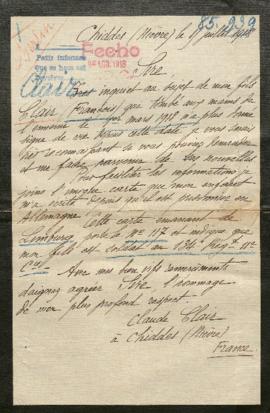 85.939
Chiddes (Nièvre) le 8 juillet 1918
Fecho
1918
Petit internee
Clair
Sire,
Très inquiet au sujet de mon fils
Clair François qui tombé aux mains de
l'ennemi le 1er mars 1918 n'a plus donné
signe de vie depuis cette date je vous serais
très reconnaissant si vous pouvez
et me faire parvenir de ses nouvelles
Pour faciliter les informations je
joins l'unique carte que mon enfant
m'a écrite depuis qu'il est prisonnier en
Allemagne Cette carte émanant de
Limburg porte le No 117 et indique que
mon fils est soldat au 134e Régt 11e
Cie
Avec mes bien vifs remerciements
daignez agréer Sire l'hommage
de mon plus profond respect.
Claude Clair
à Chiddes (Nièvre)
France